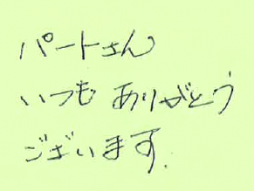 パートさん
いつも ありがとう
ございます.